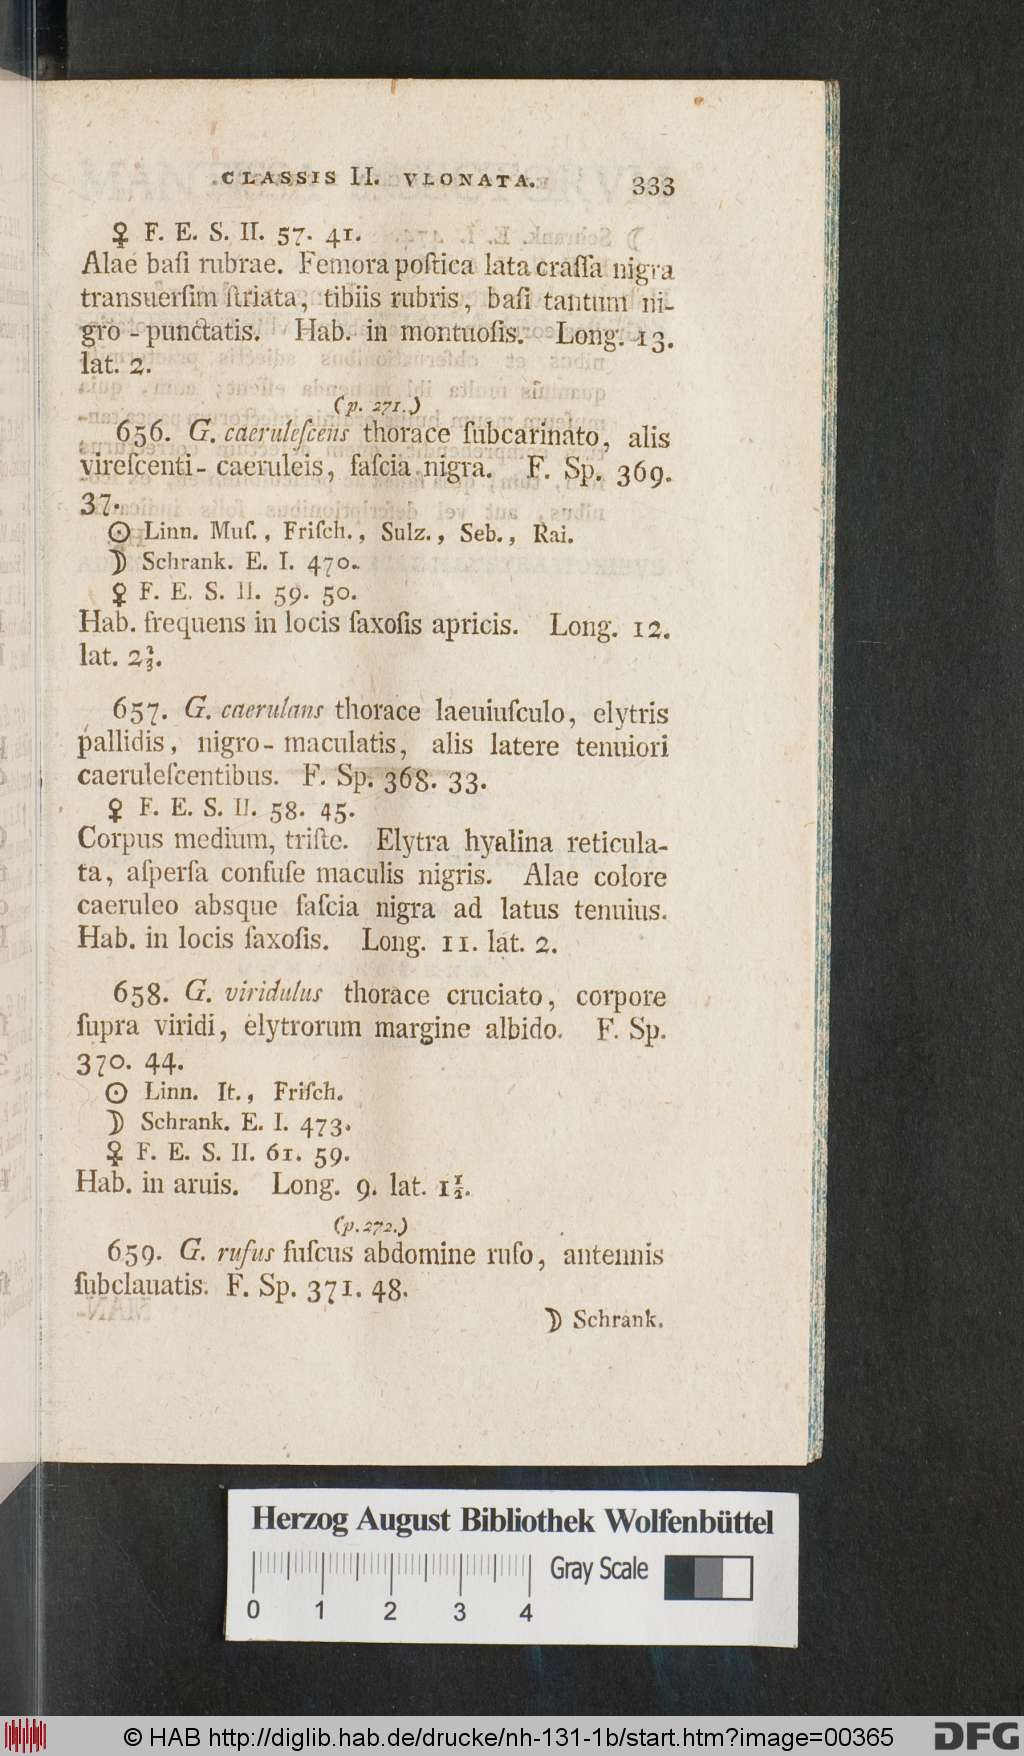 CLASSIS II. VLONATA. 333
♀ F. E. S. II. 57. 41.
Alae baſi rubrae. Femora poſtica lata craſſa nigra
transuerſim ſtriata, tibiis rubris, baſi tantum ni-
gro-punctatis. Hab. in montuoſis. Long. 13.
lat. 2.
(p. 271.)
656. G. caeruleſcens thorace ſubcarinato, alis
vireſcenti-caeruleis, faſcia nigra. F. Sp. 369.
37.
☉ Linn. Muſ., Friſch., Sulz., Seb., Rai.
☽ Schrank. E. I. 470.
♀ F. E. S. II. 59. 50.
Hab. frequens in locis ſaxoſis apricis. Long. 12.
lat. 2⅔.
657. G. caerulans thorace laeuiuſculo, elytris
pallidis, nigro-maculatis, alis latere tenuiori
caeruleſcentibus. F. Sp. 368. 33.
♀ F. E. S. II. 58. 45.
Corpus medium, triſte. Elytra hyalina reticula-
ta, aſperſa confuſe maculis nigris. Alae colore
caeruleo absque faſcia nigra ad latus tenuius.
Hab. in locis ſaxoſis. Long. 11. lat. 2.
658. G. viridulus thorace cruciato, corpore
ſupra viridi, elytrorum margine albido. F. Sp.
370. 44.
☉ Linn. It., Friſch.
☽ Schrank. E. I. 473.
♀ F. E. S. II. 61. 59.
Hab. in aruis. Long. 9. lat. 1½.
(p. 272.)
659. G. rufus fuſcus abdomine rufo, antennis
ſubclauatis. F. Sp. 371. 48.
☽ Schrank.
Herzog August Bibliothek Wolfenbüttel
Gray Scale
0 1 2 3 4
© HAB http://diglib.hab.de/drucke/nh-131-1b/start.htm?image=00365
DFG